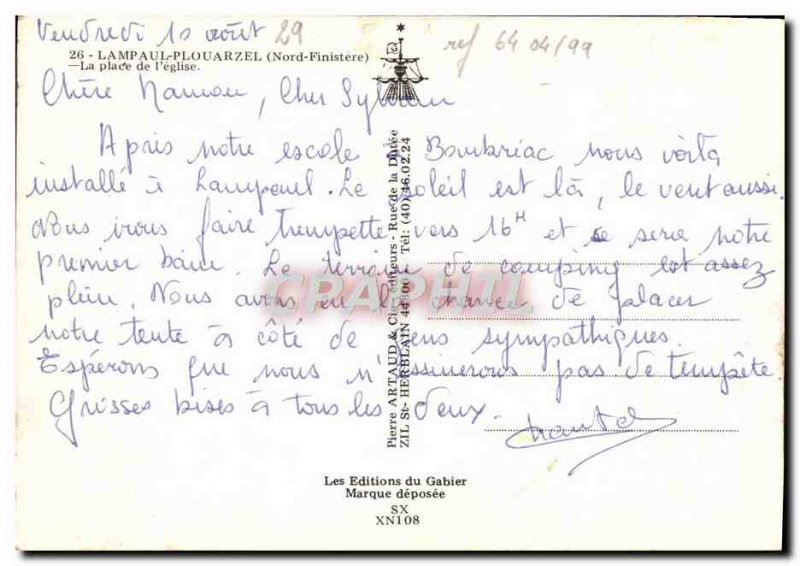 Vendredi 10 août 29
ref 64 04/99
26 - LAMPAUL-PLOUARZEL (Nord-Finistère)
—La place de l'église.
Chère Maman, Cher Sylvain
Après notre escale Bourbriac nous voilà
installé à Lampaul. Le soleil est là, le vent aussi.
Nous irons faire trempette vers 16H et ce sera notre
premier bain. Le terrain de camping est assez
plein. Nous avons eu la chance de placer
notre tente à côté de gens sympathiques.
Espérons que nous n'essuierons pas de tempête
Grosses bises à tous les deux.
Chantal
Pierre ARTAUD & Cie - Editeurs - Rue de la Dutée
ZIL St-HERBLAIN 44800 - Tél: (40) 46.02.24
CRAPHIL
Les Editions du Gabier
Marque déposée
SX
XN108